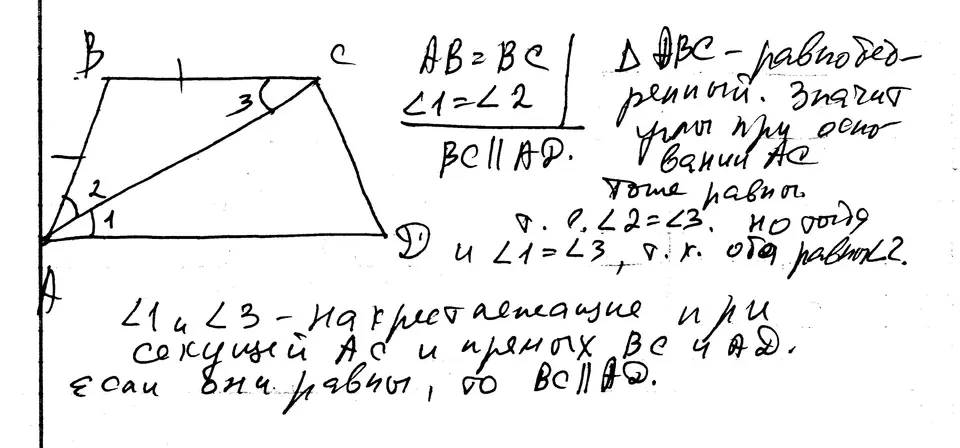 B
C
3
2
1
A
D
AB = BC
∠1 = ∠2
BC || AD.
Δ ABC – равнобед-
ренный. Значит
углы при осно
вании AC
тоже равны
т. е. ∠2 = ∠3. но тогда
и ∠1 = ∠3, т. к. оба равны ∠2.
∠1 и ∠3 – накрест лежащие при
секущей AC и прямых BC и AD.
Если они равны, то BC || AD.